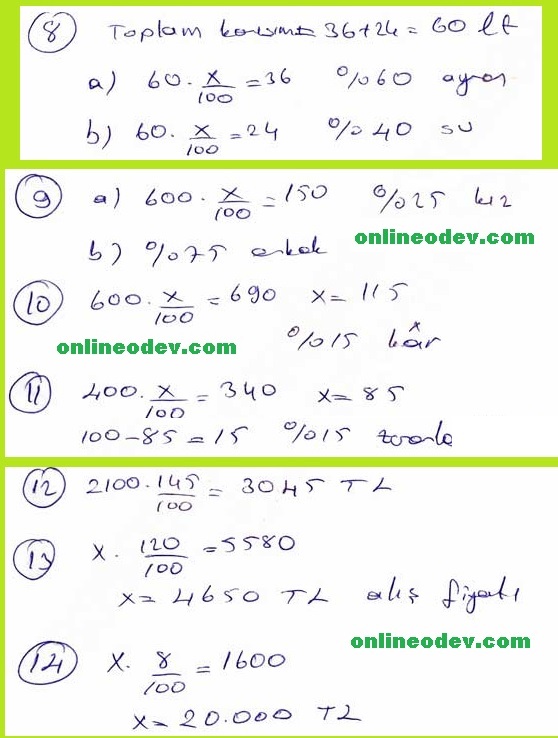 8 Toplam karışım = 36+24 = 60 lt
a) 60 · x/100 = 36 %60
b) 60 · x/100 = 24 %40 su
9 a) 600 · x/100 = 150 %25 kız
b) %75 erkek
onlineodev.com
10 600 · x/100 = 690 x = 115
%15 kâr
onlineodev.com
11 400 · x/100 = 340 x = 85
100 - 85 = 15 %15 zararla
12 2100 · 145/100 = 3045 TL
13 x · 120/100 = 5580
x = 4650 TL alış fiyatı
onlineodev.com
14 x · 8/100 = 1600
x = 20.000 TL